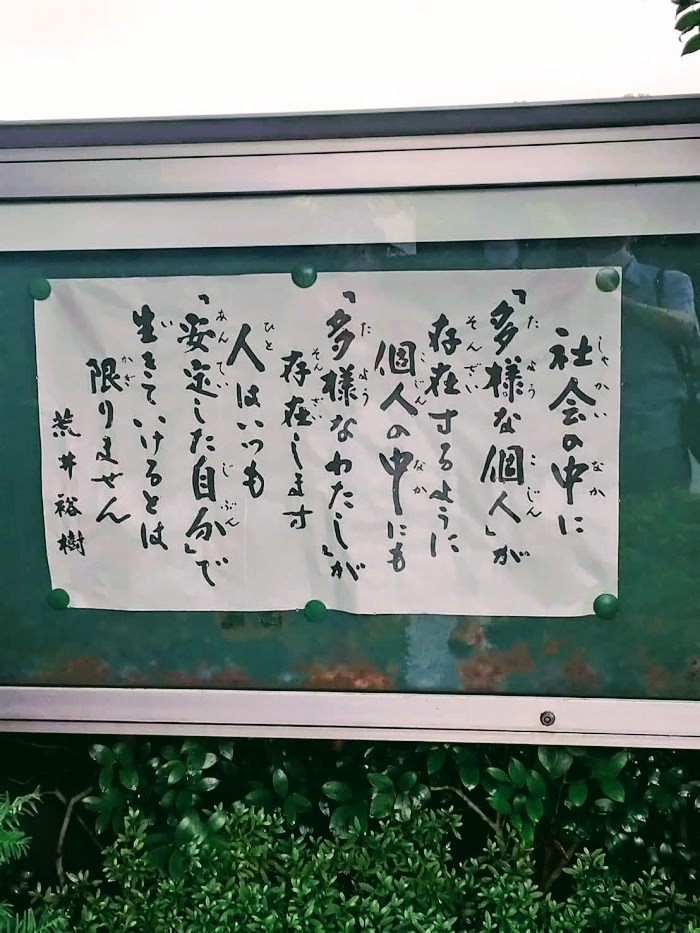 社会の中に
「多様な個人」が
存在するように
個人の中にも
「多様なわたし」が
存在します
人はいつも
「安定した自分」で
生きていけるとは
限りません
荒井裕樹